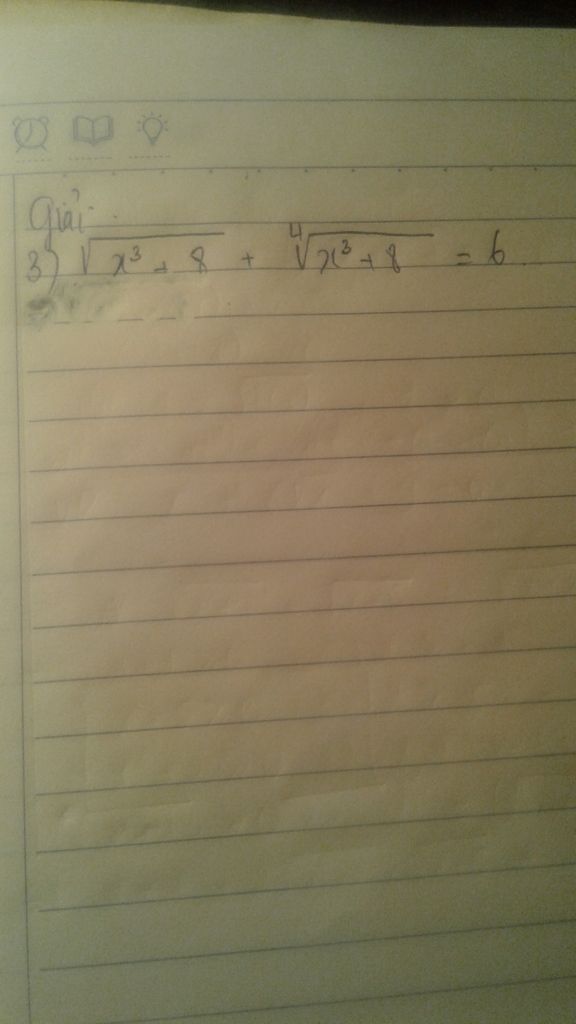 Giải
3) √(x³ + 8) + ⁴√(x³ + 8) = 6